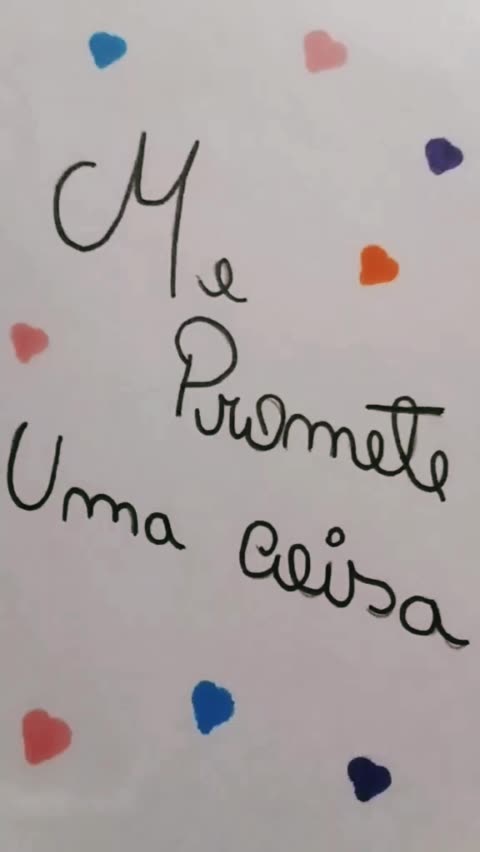 Me
Promete
Uma coisa